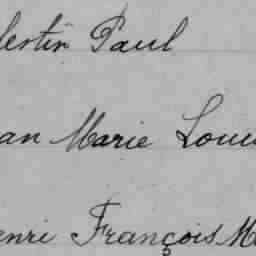 lestin Paul
an Marie Loui
enri François M